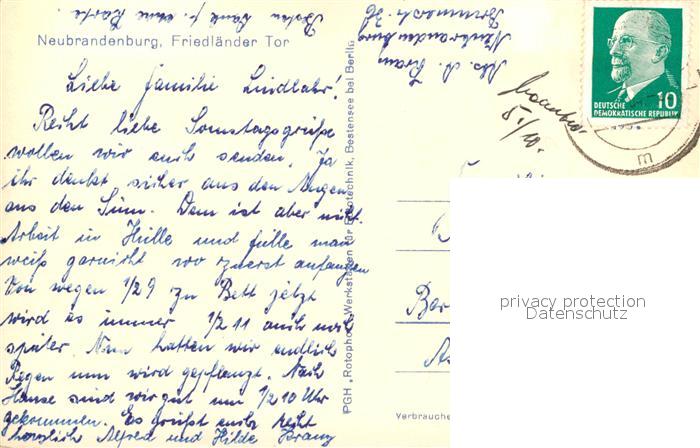 Besten Dank f. eine Karte.
Neubrandenburg, Friedländer Tor
Liebe Familie Lindlahr!
Recht liebe Samstagsgrüße
wollen wir euch senden, Ja
ihr denkt sicher aus den Augen
aus den Sinn. Dem ist aber nicht.
Arbeit in Hülle und fülle man
weiß garnicht wo zuerst anfangen
Von wegen 1/2 9 zu Bett jetzt
wird es immer 1/2 11 auch noch
später. Nun hatten wir endlich
Regen nun wird gepflanzt. Nach
Hause sind wir gut um 1/2 10 Uhr
gekommen. Es grüßt euch recht
herzlich Alfred und Hilde Kranz
Abs. A. Kranz
Neubrandenburg
PGH „Rotophot“ Werkstätten für Fototechnik, Bestensee bei Berlin
5./10.
DEUTSCHE
DEMOKRATISCHE REPUBLIK
10
m
privacy protection
Datenschutz
Verbrauche